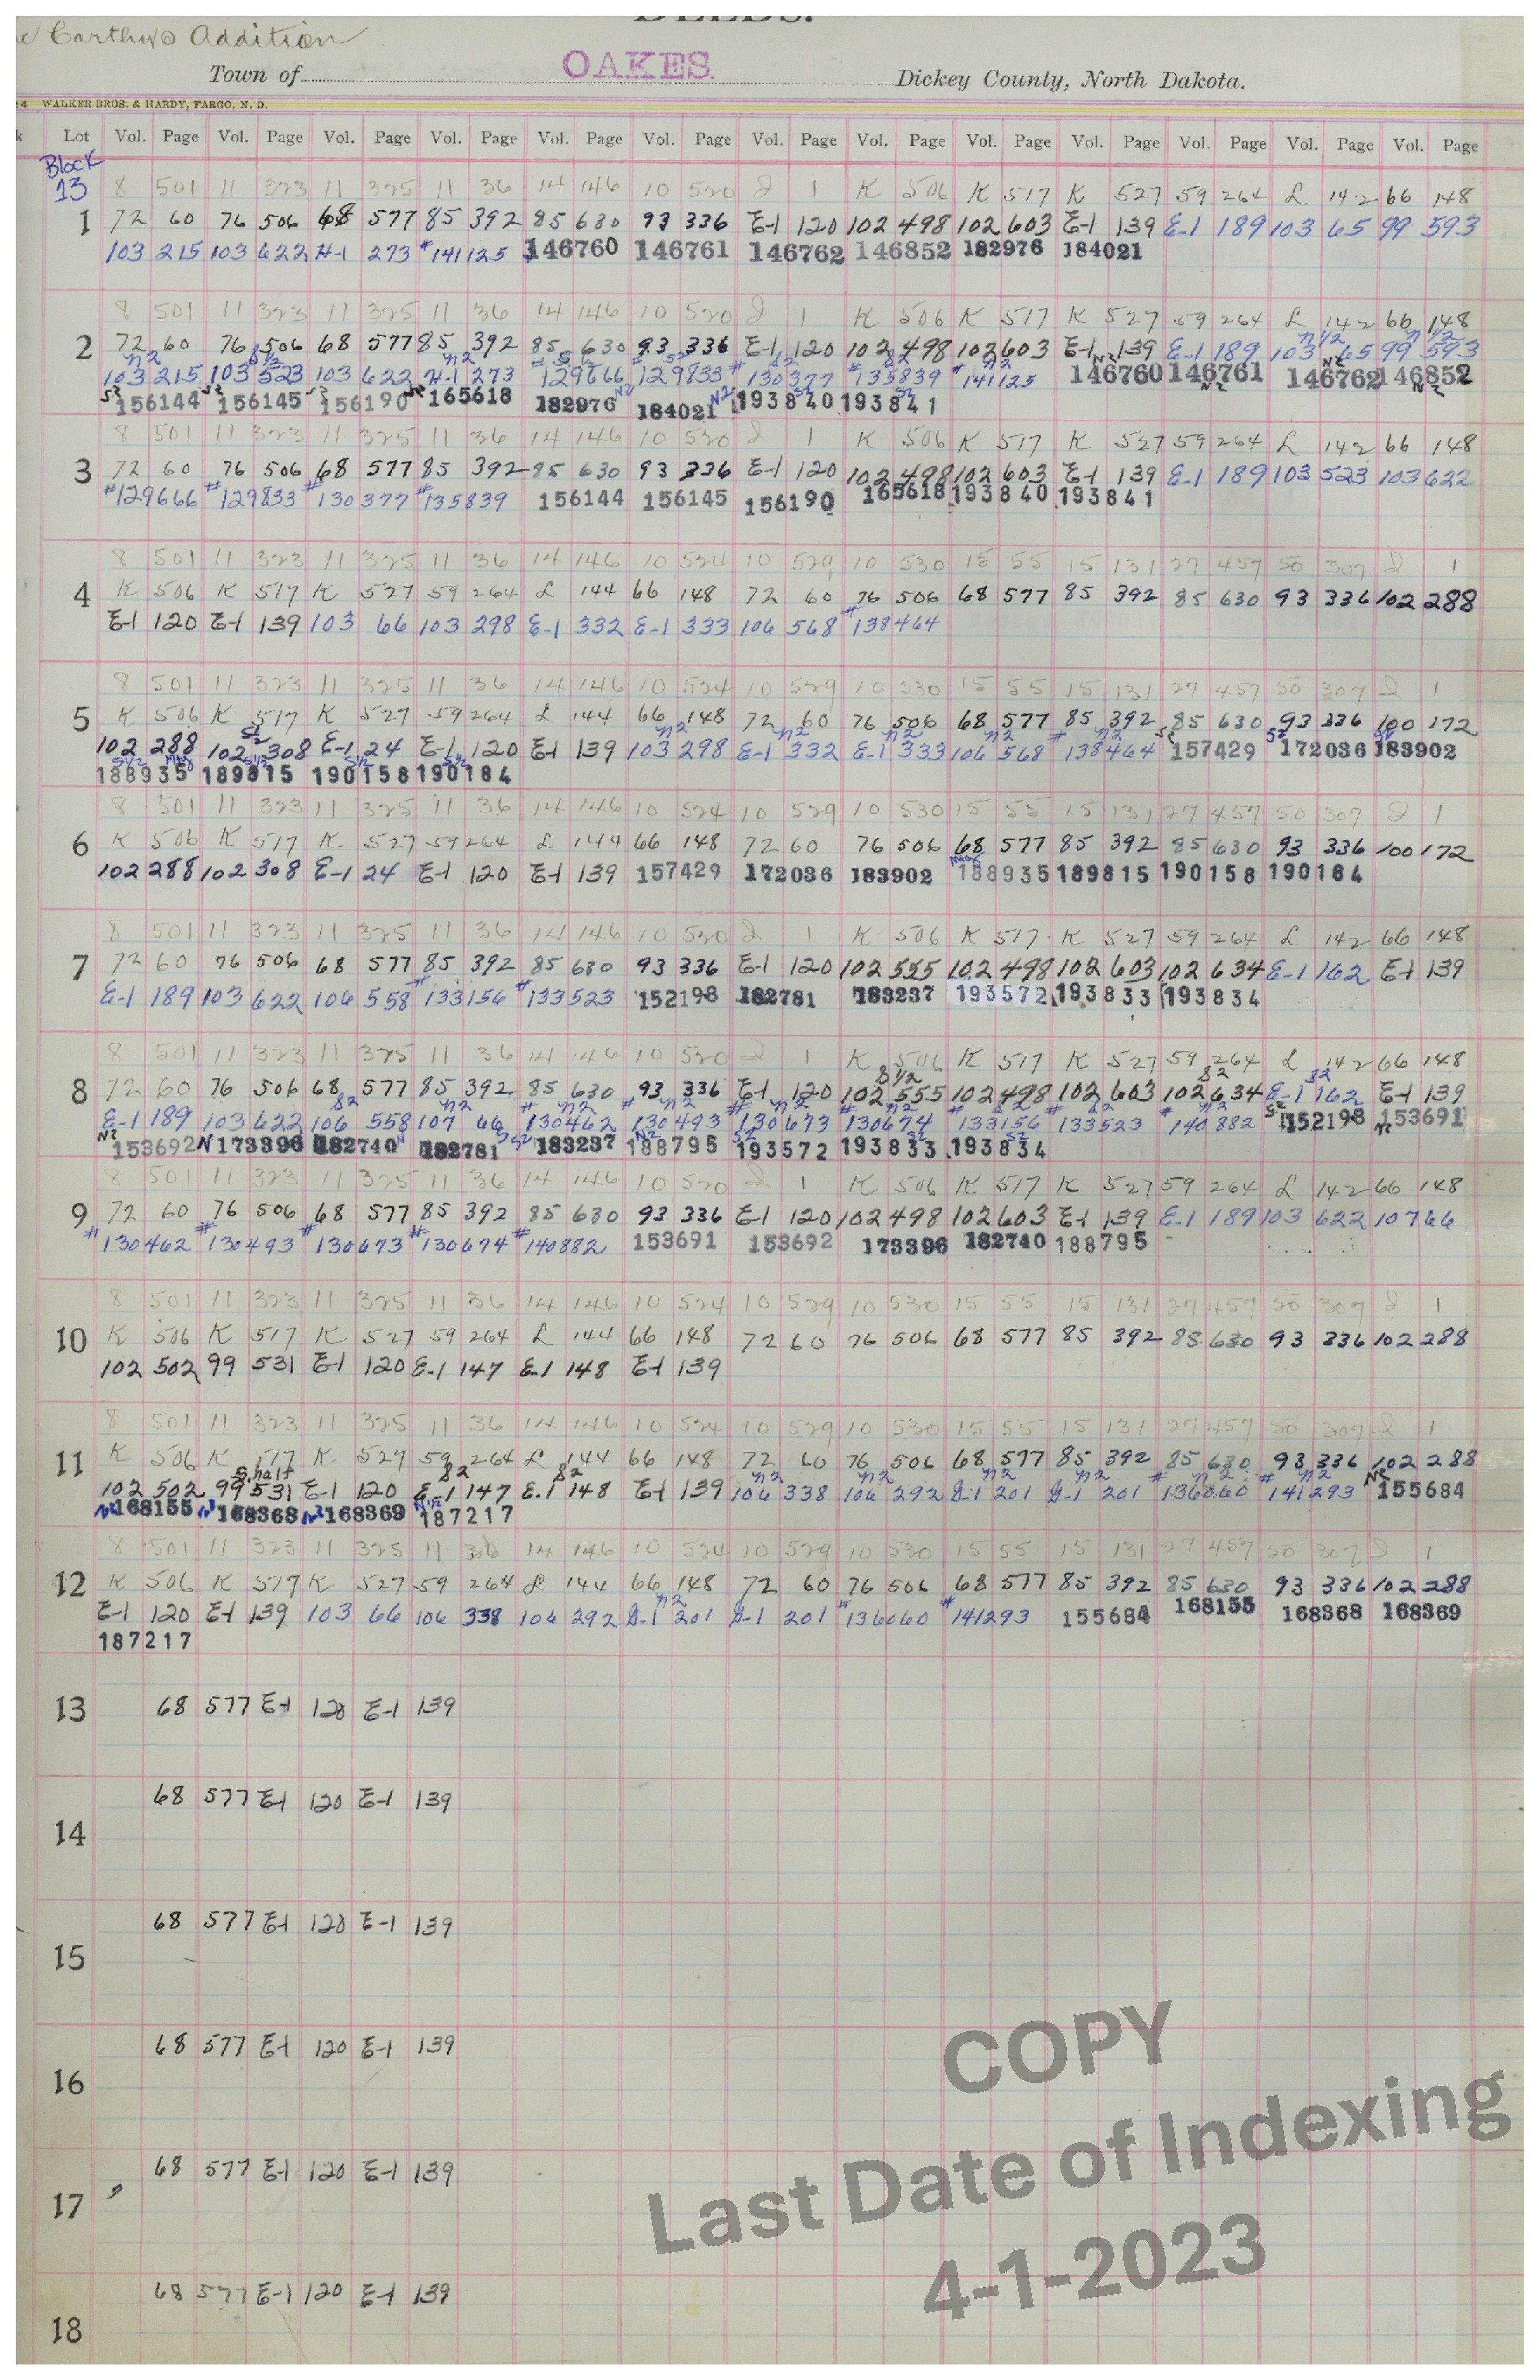 DEEDS.
Carthy's Addition
Town of OAKES Dickey County, North Dakota.
24 WALKER BROS. & HARDY, FARGO, N. D.
k Lot Vol. Page Vol. Page Vol. Page Vol. Page Vol. Page Vol. Page Vol. Page Vol. Page Vol. Page Vol. Page Vol. Page Vol. Page Vol. Page
Block
13 8 501 11 323 11 325 11 36 14 146 10 520 J 1 K 506 K 517 K 527 59 264 L 142 66 148
1 72 60 76 506 68 577 85 392 85 630 93 336 E-1 120 102 498 102 603 E-1 139 E-1 189 103 65 99 593
103 215 103 622 H-1 273 #141125 146760 146761 146762 146852 182976 184021
8 501 11 323 11 325 11 36 14 146 10 520 J 1 K 506 K 517 K 527 59 264 L 142 66 148
2 72 60 76 506 68 577 85 392 85 630 93 336 E-1 120 102 498 102 603 E-1 139 E-1 189 103 65 99 593
N2 S1/2 N2 S2 S2 S2 S2 N2 N1/2 N1/2
103 215 103 523 103 622 H-1 273 #129666 #129833 #130377 #135839 #141125 146760 146761 146762 146852
S2 156144 S2 156145 S2 156190 S2 165618 182976 N2 184021 N2 193840 193841
8 501 11 323 11 325 11 36 14 146 10 520 J 1 K 506 K 517 K 527 59 264 L 142 66 148
3 72 60 76 506 68 577 85 392 85 630 93 336 E-1 120 102 498 102 603 E-1 139 E-1 189 103 523 103 622
#129666 #129833 #130377 #135839 156144 156145 156190 165618 193840 193841
8 501 11 323 11 325 11 36 14 146 10 524 10 529 10 530 15 55 15 131 27 457 50 307 J 1
4 K 506 K 517 K 527 59 264 L 144 66 148 72 60 76 506 68 577 85 392 85 630 93 336 102 288
E-1 120 E-1 139 103 66 103 298 E-1 332 E-1 333 106 568 #138464
8 501 11 323 11 325 11 36 14 146 10 524 10 529 10 530 15 55 15 131 27 457 50 307 J 1
5 K 506 K 517 K 527 59 264 L 144 66 148 72 60 76 506 68 577 85 392 85 630 93 336 100 172
S1/2 N2 N2 N2 N2 N2 S2 S2 S2
102 288 102 308 E-1 24 E-1 120 E-1 139 103 298 E-1 332 E-1 333 106 568 #138464 157429 172036 183902
S1/2 Mtg S1/2 S1/2 S1/2
188935 189815 190158 190184
8 501 11 323 11 325 11 36 14 146 10 524 10 529 10 530 15 55 15 131 27 457 50 307 J 1
6 K 506 K 517 K 527 59 264 L 144 66 148 72 60 76 506 68 577 85 392 85 630 93 336 100 172
102 288 102 308 E-1 24 E-1 120 E-1 139 157429 172036 183902 Mtg 188935 189815 190158 190184
8 501 11 323 11 325 11 36 14 146 10 520 J 1 K 506 K 517 K 527 59 264 L 142 66 148
7 72 60 76 506 68 577 85 392 85 630 93 336 E-1 120 102 555 102 498 102 603 102 634 E-1 162 E-1 139
E-1 189 103 622 106 558 #133156 #133523 152198 182781 183237 193572 193833 193834
8 501 11 323 11 325 11 36 14 146 10 520 J 1 K 506 K 517 K 527 59 264 L 142 66 148
S1/2 S2 S2
8 72 60 76 506 68 577 85 392 85 630 93 336 E-1 120 102 555 102 498 102 603 102 634 E-1 162 E-1 139
S2 N2 N2 N2 N2 N2 S2 S2 N2 S2 N2
E-1 189 103 622 106 558 107 66 #130462 #130493 #130673 #130674 #133156 #133523 #140882 152198 153691
N2 153692 N 173396 182740 N 182781 S S2 183237 N2 188795 S2 193572 S2 193833 S2 193834
8 501 11 323 11 325 11 36 14 146 10 520 J 1 K 506 K 517 K 527 59 264 L 142 66 148
9 72 60 76 506 68 577 85 392 85 630 93 336 E-1 120 102 498 102 603 E-1 139 E-1 189 103 622 107 66
#130462 #130493 #130673 #130674 #140882 153691 153692 173396 182740 188795
8 501 11 323 11 325 11 36 14 146 10 524 10 529 10 530 15 55 15 131 27 457 50 307 J 1
10 K 506 K 517 K 527 59 264 L 144 66 148 72 60 76 506 68 577 85 392 85 630 93 336 102 288
102 502 99 531 E-1 120 E-1 147 E-1 148 E-1 139
8 501 11 323 11 325 11 36 14 146 10 524 10 529 10 530 15 55 15 131 27 457 50 307 J 1
11 K 506 K 517 K 527 59 264 L 144 66 148 72 60 76 506 68 577 85 392 85 630 93 336 102 288
S.half S2 S2 N2 N2 N2 N2 N2 N2 N2
102 502 99 531 E-1 120 E-1 147 E-1 148 E-1 139 106 338 106 292 G-1 201 G-1 201 #136060 #141293 155684
N2 168155 N2 168368 N2 168369 N1/2 187217
8 501 11 323 11 325 11 36 14 146 10 524 10 529 10 530 15 55 15 131 27 457 50 307 J 1
12 K 506 K 517 K 527 59 264 L 144 66 148 72 60 76 506 68 577 85 392 85 630 93 336 102 288
N2
E-1 120 E-1 139 103 66 106 338 106 292 G-1 201 G-1 201 #136060 #141293 155684 168155 168368 168369
187217
13 68 577 E-1 120 E-1 139
14 68 577 E-1 120 E-1 139
15 68 577 E-1 120 E-1 139
16 68 577 E-1 120 E-1 139
17 68 577 E-1 120 E-1 139
18 68 577 E-1 120 E-1 139
COPY
Last Date of Indexing
4-1-2023